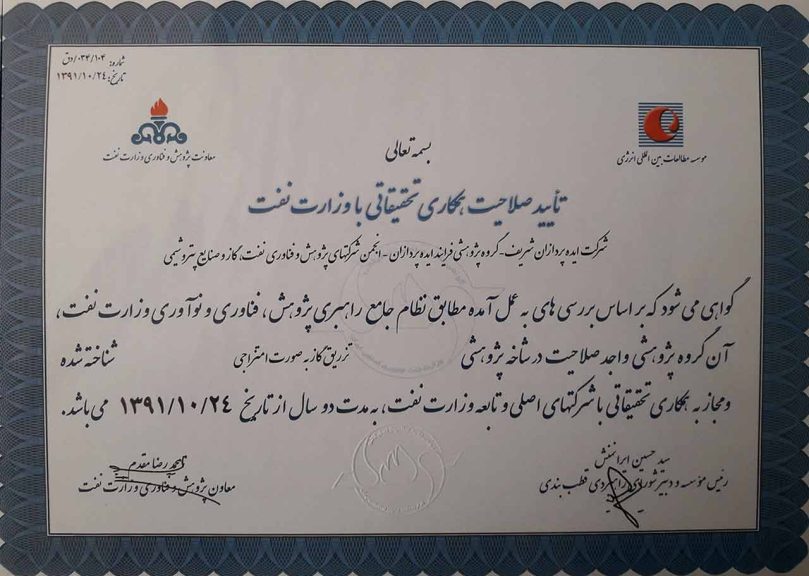 شماره: ۰۳۴/۱۰۴/دق
تاریخ: ۱۳۹۱/۱۰/۲۴
معاونت پژوهش و فناوری وزارت نفت
موسسه مطالعات بین المللی انرژی
بسمه تعالی
تأیید صلاحیت همکاری تحقیقاتی با وزارت نفت
شرکت ایده پردازان شریف-گروه پژوهشی فرایند ایده پردازان - انجمن شرکتهای پژوهش و فناوری نفت، گاز و صنایع پتروشیمی
گواهی می شود که بر اساس بررسی های به عمل آمده مطابق نظام جامع راهبری پژوهش، فناوری و نوآوری وزارت نفت،
آن گروه پژوهشی واجد صلاحیت در شاخه پژوهشی تزریق گاز به صورت امتزاجی شناخته شده
و مجاز به همکاری تحقیقاتی با شرکتهای اصلی و تابعه وزارت نفت، به مدت دو سال از تاریخ ۱۳۹۱/۱۰/۲۴ می باشد.
سید حسین
رئیس مؤسسه و دبیر شورای راهبردی قطب بندی
محمد رضا مقدم
معاون پژوهش و فناوری وزارت نفت